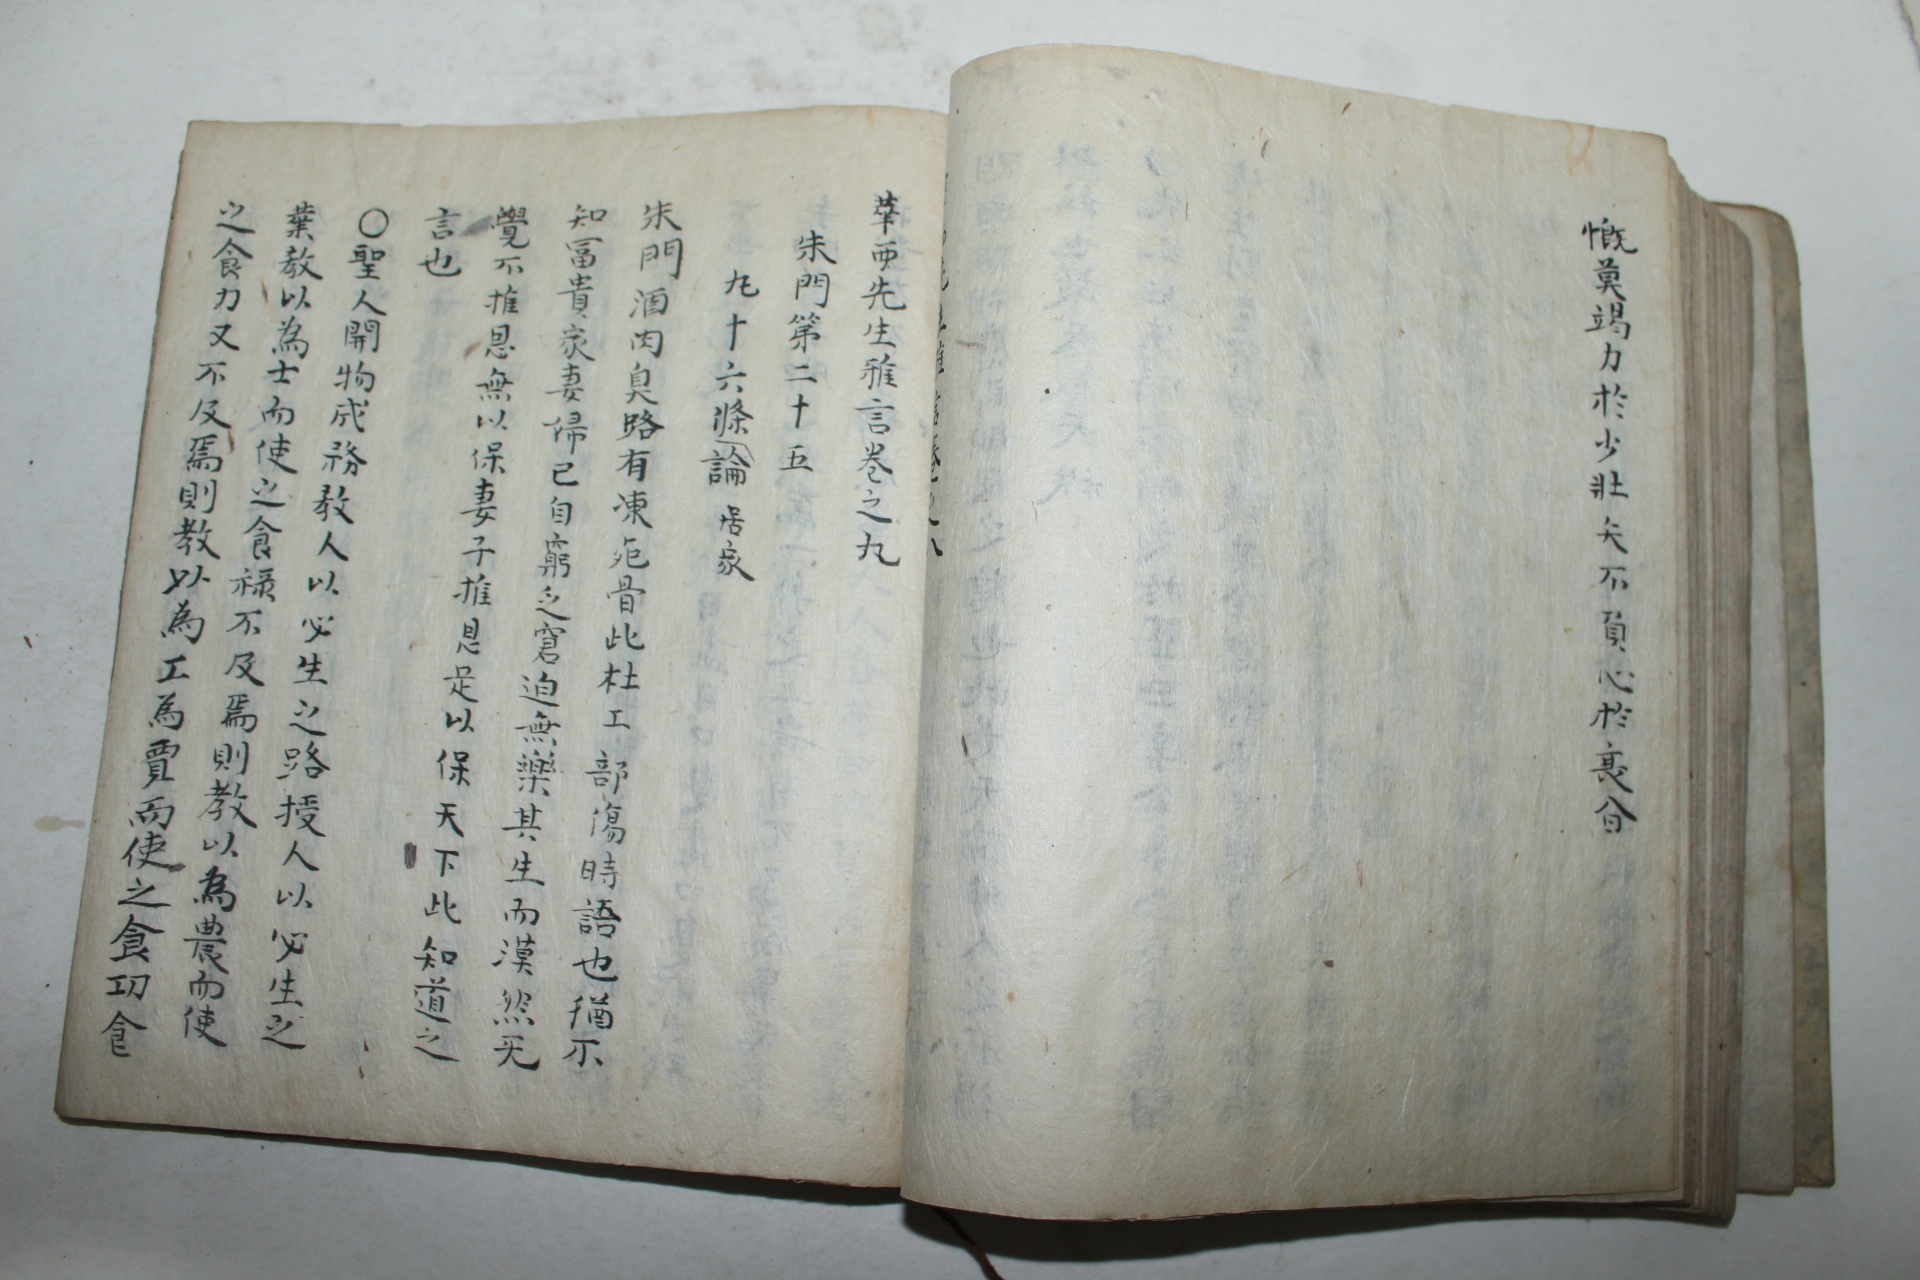 慨莫竭力於少壯矢不負心於衰昏
華西先生雅言卷之九
朱門第二十五
九十六條論居家
朱門酒肉臭路有凍死骨此杜工部傷時語也猶不
知冨貴家妻婦已自窮乏窘迫無樂其生而漠然无
覺不推恩無以保妻子推恩足以保天下此知道之
言也
〇聖人開物成務教人以必生之路授人以必生之
業教以為士而使之食祿不及焉則教以為農而使
之食力又不及焉則教以為工為賈而使之食功食